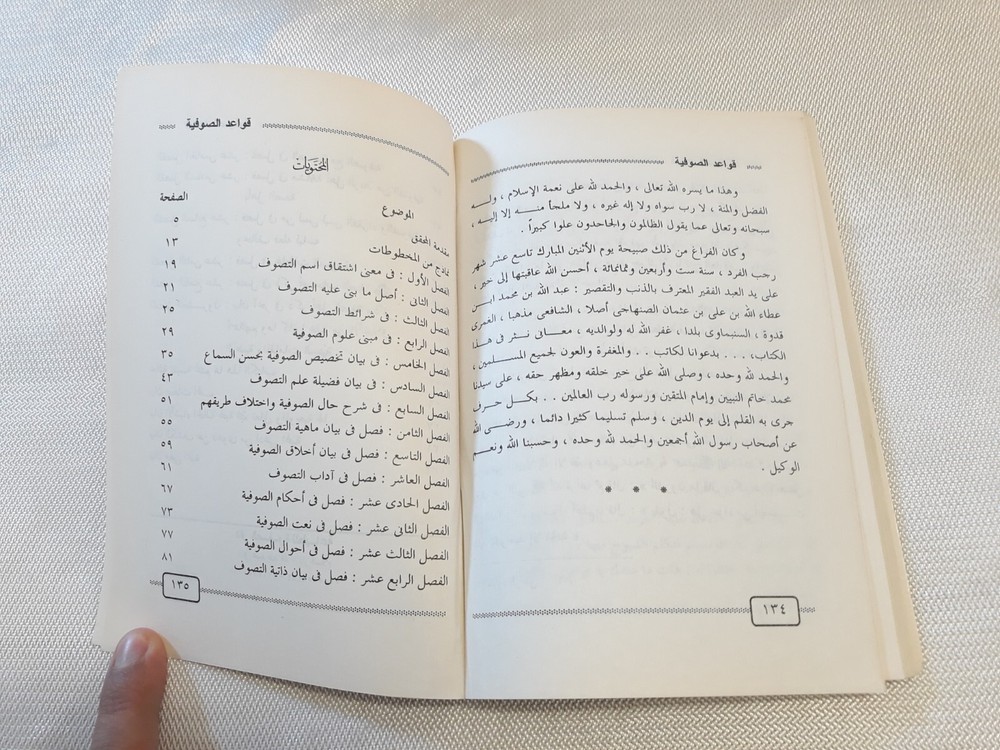 قواعد الصوفية
وهذا ما يسره الله تعالى ، والحمد لله على نعمة الإسلام ، وله
الفضل والمنة ، لا رب سواه ولا إله غيره ، ولا ملجأ منه إلا إليه ،
سبحانه وتعالى عما يقول الظالمون والجاحدون علوا كبيراً .
وكان الفراغ من ذلك صبيحة يوم الأثنين المبارك تاسع عشر شهر
رجب الفرد ، سنة ست وأربعين وثمانمائة ، أحسن الله عاقبتها إلى خير ،
على يد العبد الفقير المعترف بالذنب والتقصير : عبد الله بن محمد ابن
عطاء الله بن على بن عثمان الصنهاجى أصلا ، الشافعى مذهبا ، الغمرى
قدوة ، السنيماوى بلدا ، غفر الله له ولوالديه ، معانى نثر فى هذا
الكتاب، ... بدعوانا لكاتب .. والمغفرة والعون لجميع المسلمين ،
والحمد لله وحده ، وصلى الله على خير خلقه ومظهر حقه ، على سيدنا
محمد خاتم النبيين وإمام المتقين ورسوله رب العالمين .. بكل حرف
جرى به القلم إلى يوم الدين ، وسلم تسليما كثيرا دائما ، ورضى الله
عن أصحاب رسول الله أجمعين والحمد لله وحده ، وحسبنا الله ونعم
الوكيل .
* * *
١٣٤
قواعد الصوفية
المحتويات
الموضوع الصفحة
مقدمة المحقق ٥
نماذج من المخطوطات ١٣
الفصل الأول : فى معنى اشتقاق اسم التصوف ١٩
الفصل الثانى : أصل ما بنى عليه التصوف ٢١
الفصل الثالث : فى شرائط التصوف ٢٥
الفصل الرابع : فى مبنى علوم الصوفية ٢٩
الفصل الخامس : فى بيان تخصيص الصوفية بحسن السماع ٣٥
الفصل السادس : فى بيان فضيلة علم التصوف ٤٣
الفصل السابع : فى شرح حال الصوفية واختلاف طريقهم ٥١
الفصل الثامن : فصل فى بيان ماهية التصوف ٥٥
الفصل التاسع : فصل فى بيان أخلاق الصوفية ٥٩
الفصل العاشر : فصل فى آداب التصوف ٦١
الفصل الحادى عشر : فصل فى أحكام الصوفية ٦٧
الفصل الثانى عشر : فصل فى نعت الصوفية ٧٣
الفصل الثالث عشر : فصل فى أحوال الصوفية ٧٧
الفصل الرابع عشر : فصل فى بيان ذاتية التصوف ٨١
١٣٥